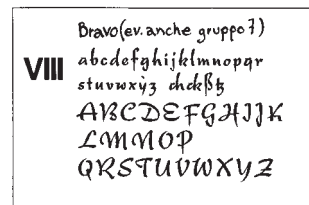 Bravo (ev. anche gruppo 7)
VIII
abcdefghijklmnopqr
stuvwxyz chckßtz
ABCDEFGHIJJK
LMNOP
QRSTUVWXYZ